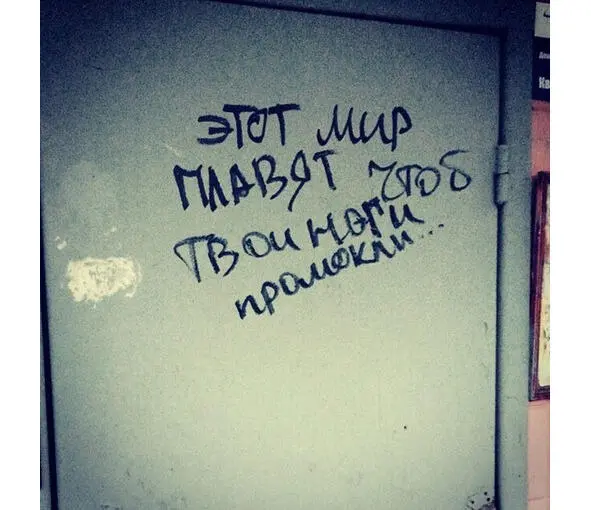 этот мир
плавят чтоб
твои ноги
промокли...
Ка